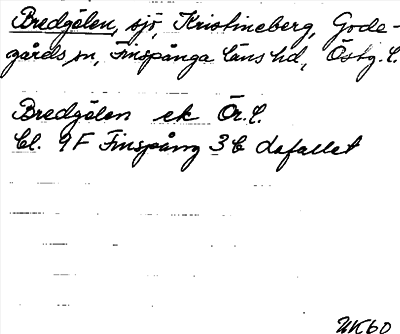 Bredgölen, sjö, Kristineberg, Gode-
gårds sn, Finspånga läns hd, Östg. l.
Bredgölen ek Ör. l.
bl. 9F Finspång 3b dafallet
UK60